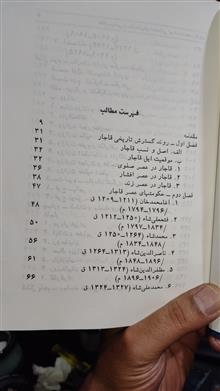 فهرست مطالب
مقدمه ۹
فصل اول ــ روند گسترش تاریخی قاجار ۳۱
الف. اصل و نسب قاجار ۳۱
ب. موقعیت ایل قاجار ۳۲
۱. قاجار در عصر صفوی ۳۲
۲. قاجار در عصر افشار ۳۶
۳. قاجار در عصر زند ۳۸
فصل دوم ــ حکومتهای عصر قاجار ۴۷
۱. آغامحمدخان (۱۲۱۱ــ۱۲۰۹ ق
/۱۷۹۶ــ۱۷۹۴ م) ۴۸
۲. فتحعلی‌شاه (۱۲۵۰ــ۱۲۱۲ ق
/۱۸۳۴ــ۱۷۹۷ م) ۵۰
۳. محمدشاه (۱۲۶۴ــ۱۲۵۰ ق
/۱۸۴۸ــ۱۸۳۴ م) ۵۶
۴. ناصرالدین‌شاه (۱۳۱۳ــ۱۲۶۴ ق
/۱۸۹۶ــ۱۸۴۸ م) ۶۱
۵. مظفرالدین‌شاه (۱۳۲۴ــ۱۳۱۳ ق
/۱۹۰۶ــ۱۸۹۶ م) ۶۶
۶. محمدعلی‌شاه (۱۳۲۷ــ۱۳۲۴ ق